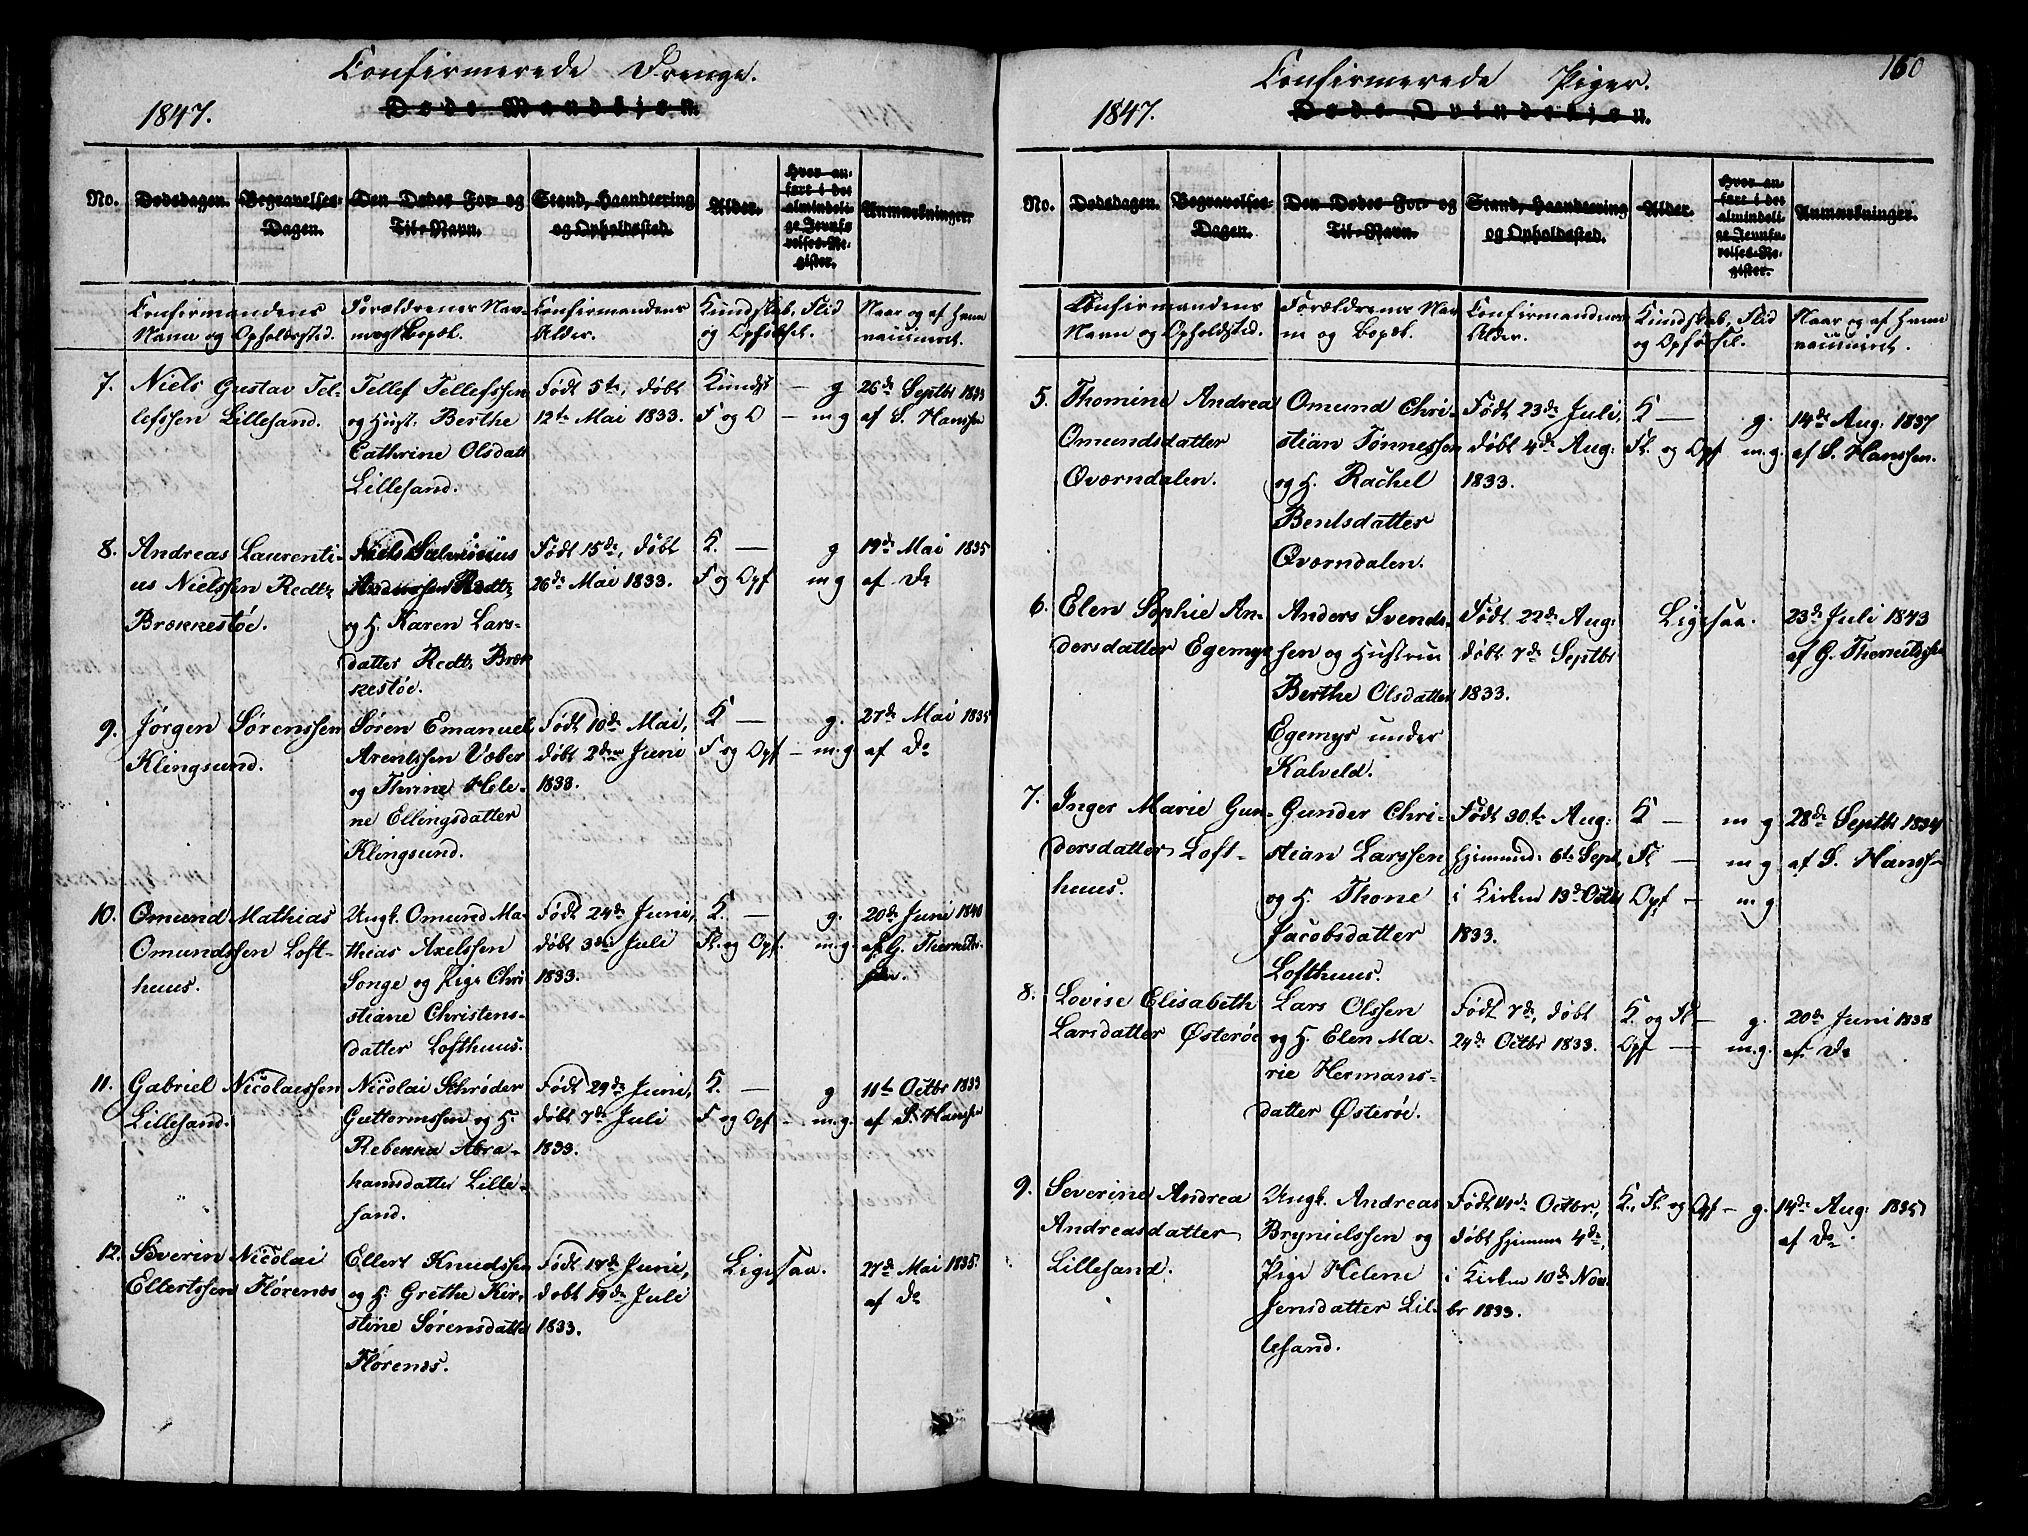 Confirmerede Drenge.
1847.
Døde Mandkjøn.
No.
Dødsdagen.
Begravelses-
Dagen.
Den Dødes For- og
Til-Navn.
Stand, Haandtering
og Opholdssted.
Alder.
Hvor an-
ført i det
almindeli-
ge Jevnfø-
relses-Re-
gister.
Anmærkninger.
Confirmandens
Navn og Opholdssted.
Forældrenes Nav-
ne og Bopæl.
Confirmandens
Alder.
Kundskab, Flid
og Opførsel.
Naar og af hvem
vaccineret.
7. Niels Gustav Tel-
lefssen Lillesand.
Tellef Tellefssen
og Hust: Berthe
Cathrine Olsdatt
Lillesand.
Født 5te, døbt
12te Mai 1833.
Kundsk — g
F og O — m.g
26de Septbr 1833
af S. Hanssen
8. Andreas Laurenti-
us Nielssen Redtz
Brækkestøe.
Niels
Redtz,
og H. Karen Lars-
datter Redtz, Bræk
kestøe.
Født 15de, døbt
26de Mai 1833.
K. — g
F og Opf m g
19de Mai 1835
af Do
9. Jørgen Sørenssen
Klingsund.
Søren Emanuel
Arentssen Væber
og Thrine Hele-
ne Ellingsdatter
Klingsund.
Født 10de Mai,
døbt 2den Juni
1833.
K — g.
F og Opf — m.g
27de Mai 1835
af Do
10. Omund Mathias
Omundssen Loft-
huus.
Ungk. Omund Ma-
thias Axelssen
Songe og Pige Chri
stiane Christens-
datter Lofthuus.
Født 24de Juni,
døbt 3die Juli
1833.
K. — g.
Fl. og Opf. m.g.
20de Juni 1840
af G.
11. Gabriel Nicolaissen
Lillesand.
Nicolai Schrøder
Guttormssen og H.
Rebekka Abra-
hamsdatter Lille-
sand.
Født 29de Juni,
døbt 7de Juli
1833.
K. — g
F og Opf — m.g.
11te Octbr 1833
af S. Hanssen
12. Severin Nicolai
Ellertssen Flørenes
Ellert Knudssen
og H Grethe Kir-
stine Sørensdatter
Flørenes.
Født 17de Juni,
døbt 19de Juli
1833.
Ligesaa.
27de Mai 1835
af Do
160
Confirmerede Piger.
1847.
Døde Qvindekjøn.
No.
Dødsdagen.
Begravelses-
Dagen.
Den Dødes For- og
Til-Navn.
Stand, Haandtering
og Opholdssted.
Alder.
Hvor an-
ført i det
almindeli-
ge Jevnfø-
relses-Re-
gister.
Anmærkninger.
Confirmandens
Navn og Opholdsted.
Forældrenes Nav
n og Bopæl.
Confirmandens
Alder.
Kundskab, Flid
og Opførsel.
Naar og af hvem
vaccineret.
5. Thomine Andrea
Omundsdatter
Qværndalen.
Omund Chri-
stian Tønnessen
og H. Rachel
Bentsdatter
Qværndalen.
Født 23de Juli,
døbt 4de Aug:
1833.
K — g.
Fl. og Opf m.g.
14de Aug: 1837
af S. Hanssen.
6. Elen Sophie An-
dersdatter Egemyr
Anders Svends-
sen og Hustrue
Berthe Olsdatter
Egemyr under
Kalveld.
Født 22de Aug:
døbt 7de Septbr
1833.
Ligesaa.
23de Juli 1843
af G.
7. Inger Marie Gun-
dersdatter Loft-
huus.
Gunder Chri-
stian Larssen
og H. Thone
Jacobsdatter
Lofthuus.
Født 30te Aug:
hjemmed: 6te Sept,
i Kirken 13de Octbr
1833.
K — m g
Fl — m.g
Opf — m.g
28de Septbr 1834
af S. Hanss-
8. Lovise Elisabeth
Larsdatter Østerøe
Lars Olssen
og H. Elen Ma-
rie Hermans-
datter Østerøe.
Født 7de, døbt
24de Octbr 1833.
K. og Fl — g.
Opf — m.g.
20de Juni 1838
af Do
9. Severine Andrea
Andreasdatter
Lillesand.
Ungk. Andreas
Brynielssen og
Pige Helene
Jensdatter Lil-
lesand.
Født 4de Octbr,
døbt hjemme 4de,
i Kirken 10de Nov
br 1833.
K., Fl. og Opf — g.
14de Aug: 1835
af Do.